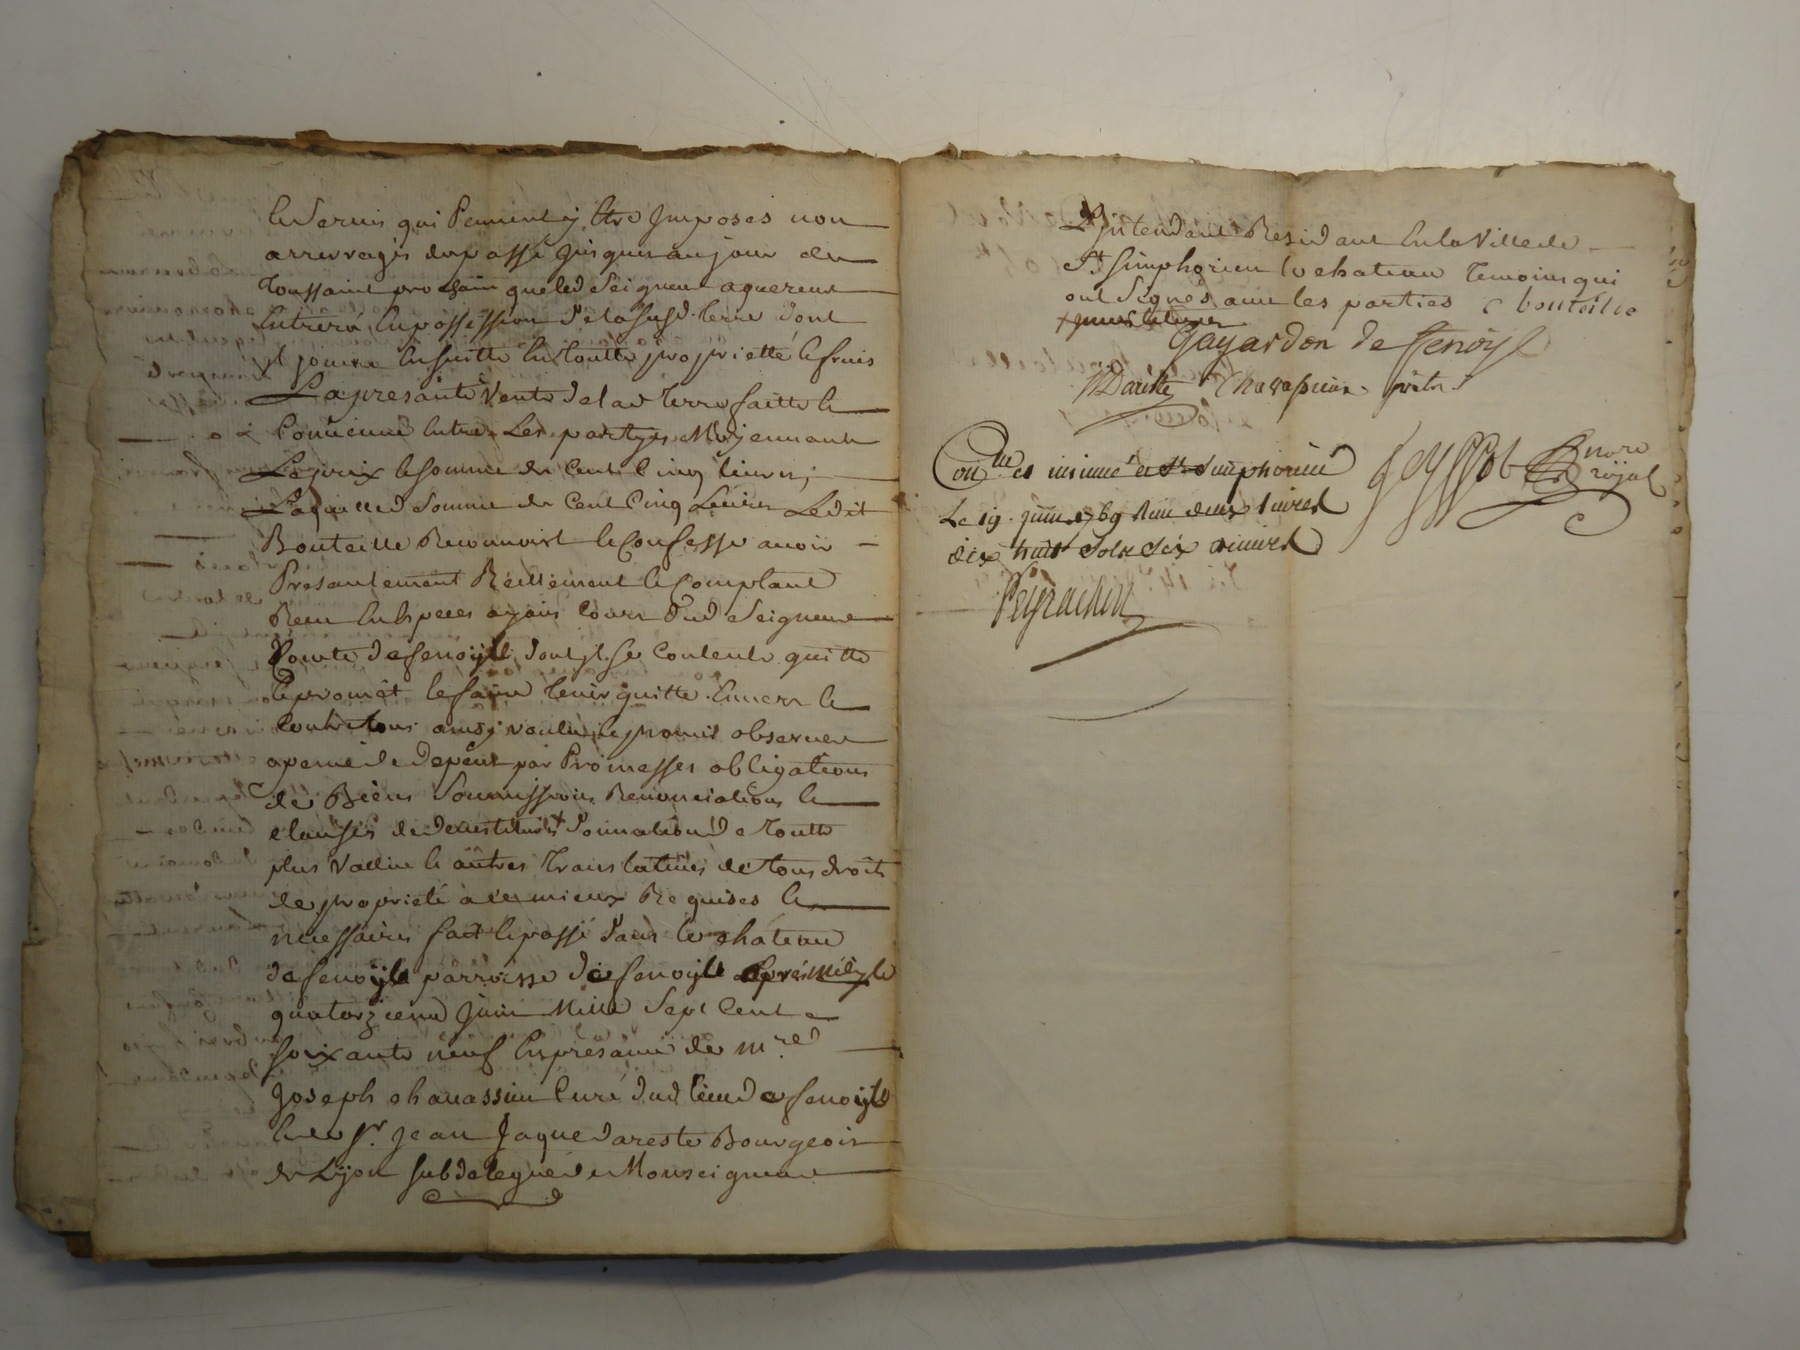 le servis qui peuvent y etre Imposés non
arrerragés du passé jusques au jour de
Toussaint prochain que led Seigneur aquereur
Entrera en possession de la susd. terre dont
Il jouira ensuitte en toutte proprietté le fruis
La presante Vente de lad Terre faitte le
Convenue entre Les partyes Moyennant
Le prix le somme de Cent Cinq livres,
Laquelled Somme de Cent Cinq Livres Ledit
Bouteille Reconnoist le Confesse avoir
Presantement Réellement le Comptant
Reçu en Especes ayans Cours Dud Seigneur
Comte de fenoÿl dont Il se Contente quitte
le promet le faire tenir quitte Envers le
Contre tous ainsy voulu le promis observer
a peine de Depens par Promesses obligations
de Biens Soumissions Renonciations le
clauses de devestitures + Donnation de Toutte
plus Vallue le autres Translatives de tous droits
de proprieté à ce mieux Requises le
necessaires fait le passé dans le chateau
de fenoÿl parroisse de fenoÿl le
quatorzieme Juin Mille Sept Cent
soixante neuf En presance de mre
Joseph chavassieu Curé dud lieu de fenoÿl
le de Sr Jean Jaque dareste Bourgeois
de Lyon subdelegué de Monseigneur
L'Intendant Residant En la Ville de
St Simphorien le chateau Temoins qui
ont Signés avec les parties c bouteille
+ Investitures
Gayardon de fenoÿl
Dareste Chavassieu
Con.lé et insinué a St Simphorien
Le 19 juin 1769 Reçu deux livres
dix huit sols six deniers
Peyssot nore
royal
Peyrachon